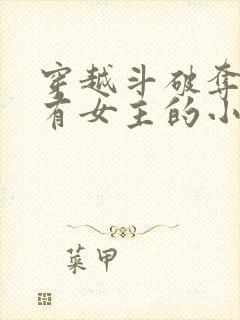 穿越斗破夺
有女主的小
菜甲